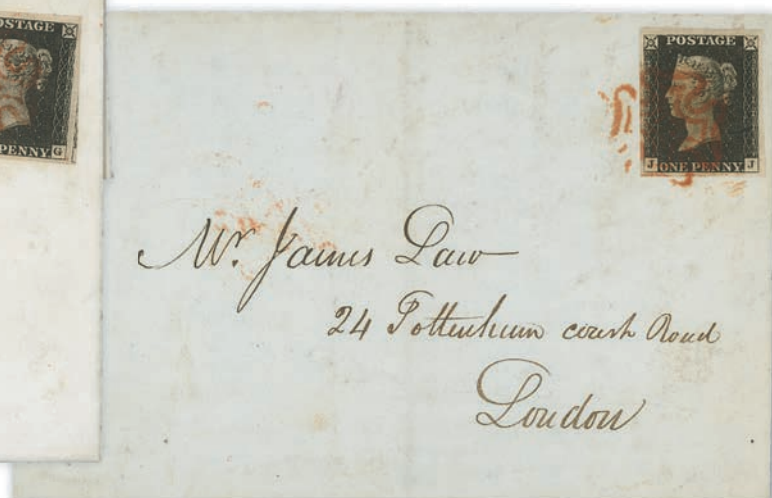 POSTAGE
PENNY G
POSTAGE
J ONE PENNY J
Mr. James Law
24 Tottenham court Road
London